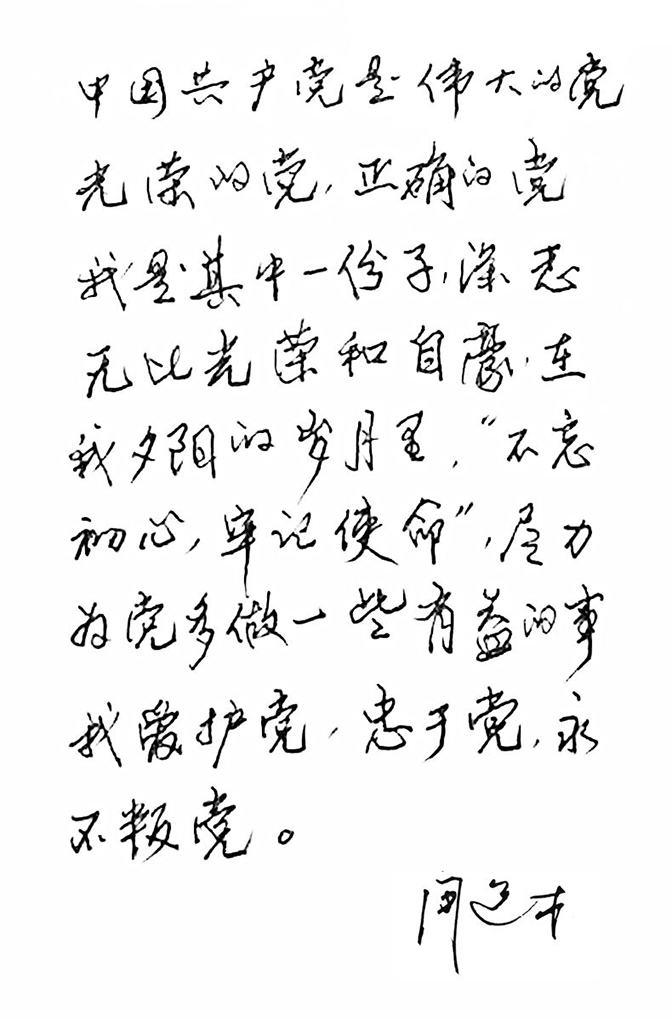 中国共产党是伟大的党
光荣的党，正确的党
我是其中一份子，深感
无比光荣和自豪，在
我夕阳的岁月里，“不忘
初心，牢记使命”，尽力
为党多做一些有益的事
我爱护党，忠于党，永
不叛党。